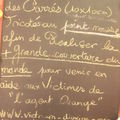 des Carrés (10x10cm)
tricotés au point mousse
afin de Réaliser la
+ grande couverture du
monde pour venir en
aide aux Victimes de
"l'agent Orange"